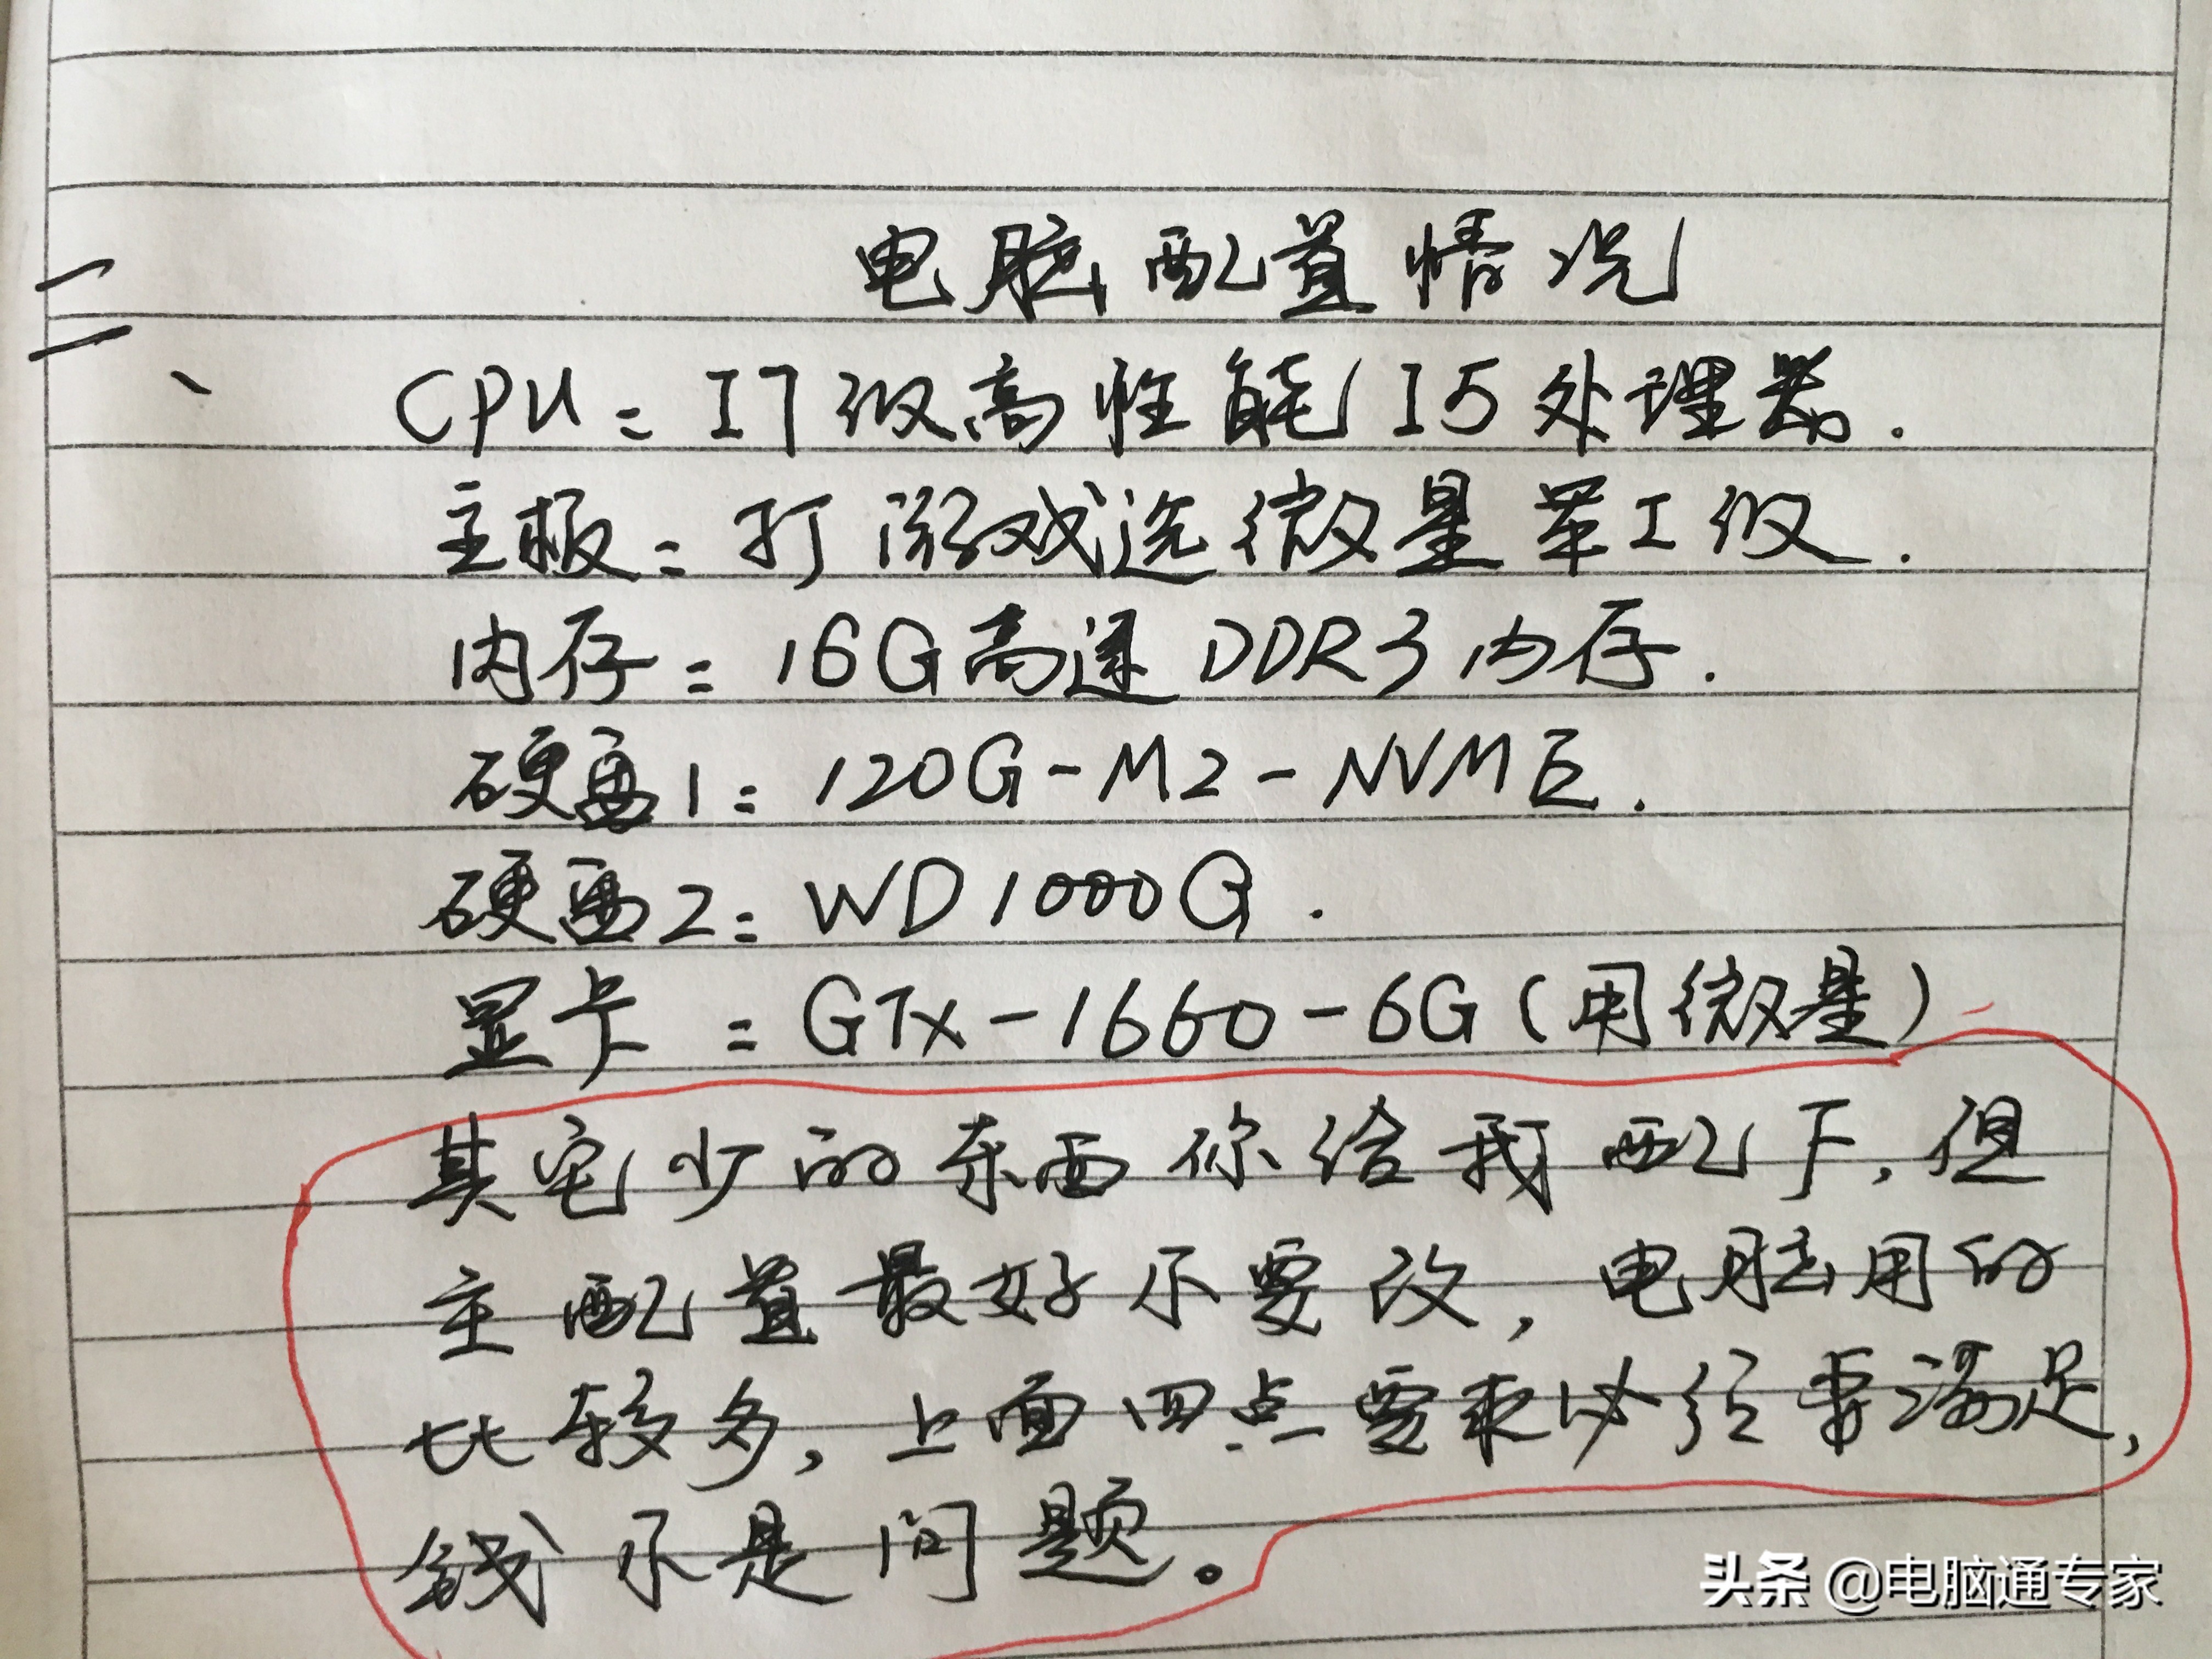 电脑配置情况
二、
CPU：I7级高性能I5处理器.
主板：打游戏选微星军工级.
内存：16G高速DDR3内存.
硬盘1：120G-M2-NVME.
硬盘2：WD1000G.
显卡：GTX-1660-6G(用微星)
其它少的东西你给我配下,但
主配置最好不要改,电脑用的
比较多,上面四点要求必须要满足,
钱不是问题。
头条 @电脑通专家